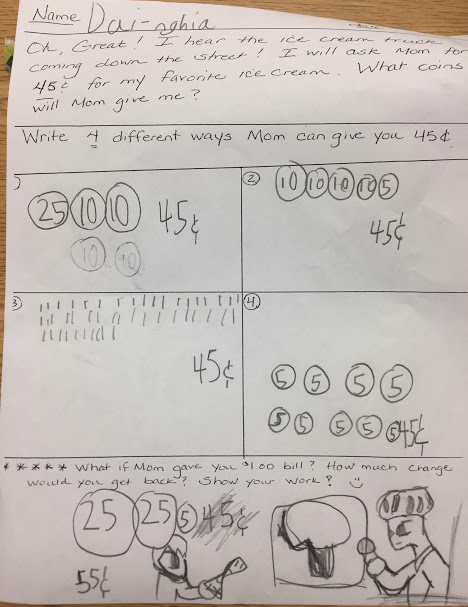 Name Dai-nghia
Oh, Great! I hear the ice cream truck
coming down the street! I will ask Mom for
45¢ for my favorite ice cream. What coins
will Mom give me?
Write 4 different ways Mom can give you 45¢.
1)
25 10 10 45¢
10 10
2
10 10 10 10 5
45¢
3)
45¢
4
5 5 5 5
5 5 5 5 5 45¢
***** What if Mom gave you $1.00 bill? How much change
would you get back? Show your work?
25 25 5 45¢
55¢